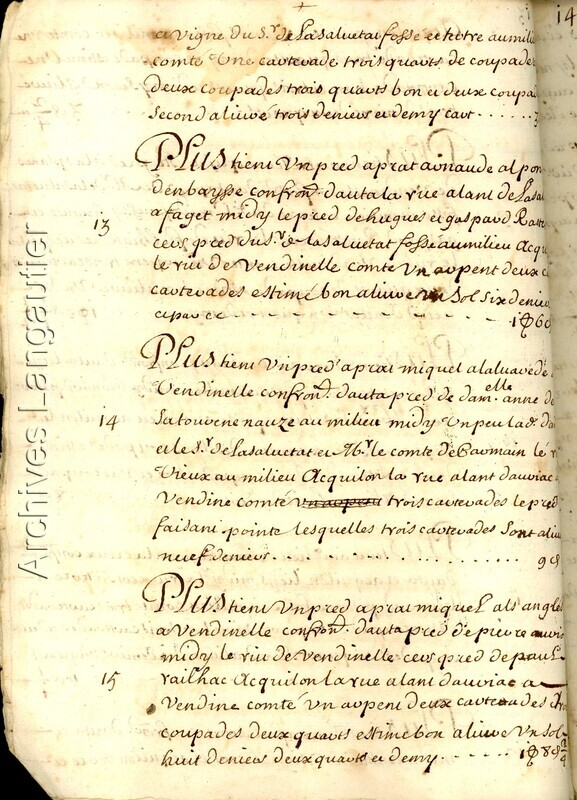 14
a vigne du S.r de Lasalvetat fosse et hotre au milie
comte Une carterade trois quarts de coupade
deux coupades trois quarts bon et deux coupa
second alivré trois deniers et demy cart . . . . . .
PLus tient Un pred a prat arnaude al pon
d'en baysse confron.t d'auta la rue alant de Lasal
a faget midy le pred de hugues et gaspard
cers pred du S.r de lasalvetat fosse au milieu Acqui
13
le riu de Vendinelle comte Un arpent deux
carterades estimé bon alivre Un sol six denier
1 s 6 d
PLus tient Un pred a prat miquel a la
Vendinelle confron.t d'auta pred de dam.elle anne de
14
La nauze au milieu midy Un peu lad. da
et le S.r de Lasalvetat et Mr. le comte de Carmain le r
Vieux au milieu Acquilon la rue alant d'auriac
Vendine comté Un arpent trois carterades le pred
faisant pointe lesquelles trois carterades sont aliu
neuf deniers . . . . . . . . . . 9 d
PLus tient Un pred a prat miquel als angle
a Vendinelle confron.t d'auta pred de pierre
midy le riu de Vendinelle cers pred de paul
15
railhac Acquilon la rue alant d'auriac a
Vendine comté Un arpent deux carterades
coupades deux quarts estimé bon alivre Un sol
huit deniers deux quarts et demy . . . . . 1 s 8 d
Archives Langautier